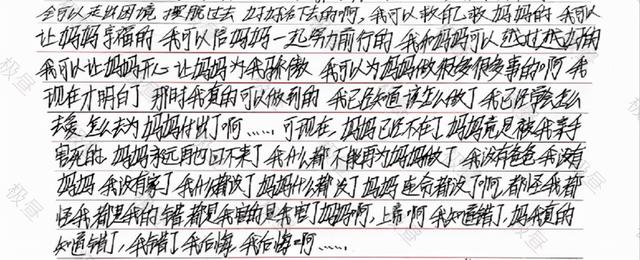 会可以走出困境 摆脱过去 好好活下去的啊，我可以救自己救妈妈的 我可以
让妈妈幸福的 我可以陪妈妈一起努力前行的 我和妈妈可以越过越好的
我可以让妈妈开心 让妈妈为我骄傲 我可以为妈妈做很多很多事的啊 我
现在才明白了 那时我真的可以做到的 我已经知道该怎么做了 我已经学会怎么
去爱 怎么去为妈妈付出了啊…… 可现在，妈妈已经不在了 妈妈竟是被我亲手
害死的 妈妈永远再也回不来了 我什么都不能再为妈妈做了 我没有爸爸 我没有
妈妈 我没有家了 我什么都没了 妈妈什么都没了 妈妈连命都没了啊，都怪我都
怪我 都是我的错 都是我害的 是我害了妈妈啊，上帝啊 我知道错了，妈 我真的
知道错了，我错了 我后悔，我后悔啊……
极昼